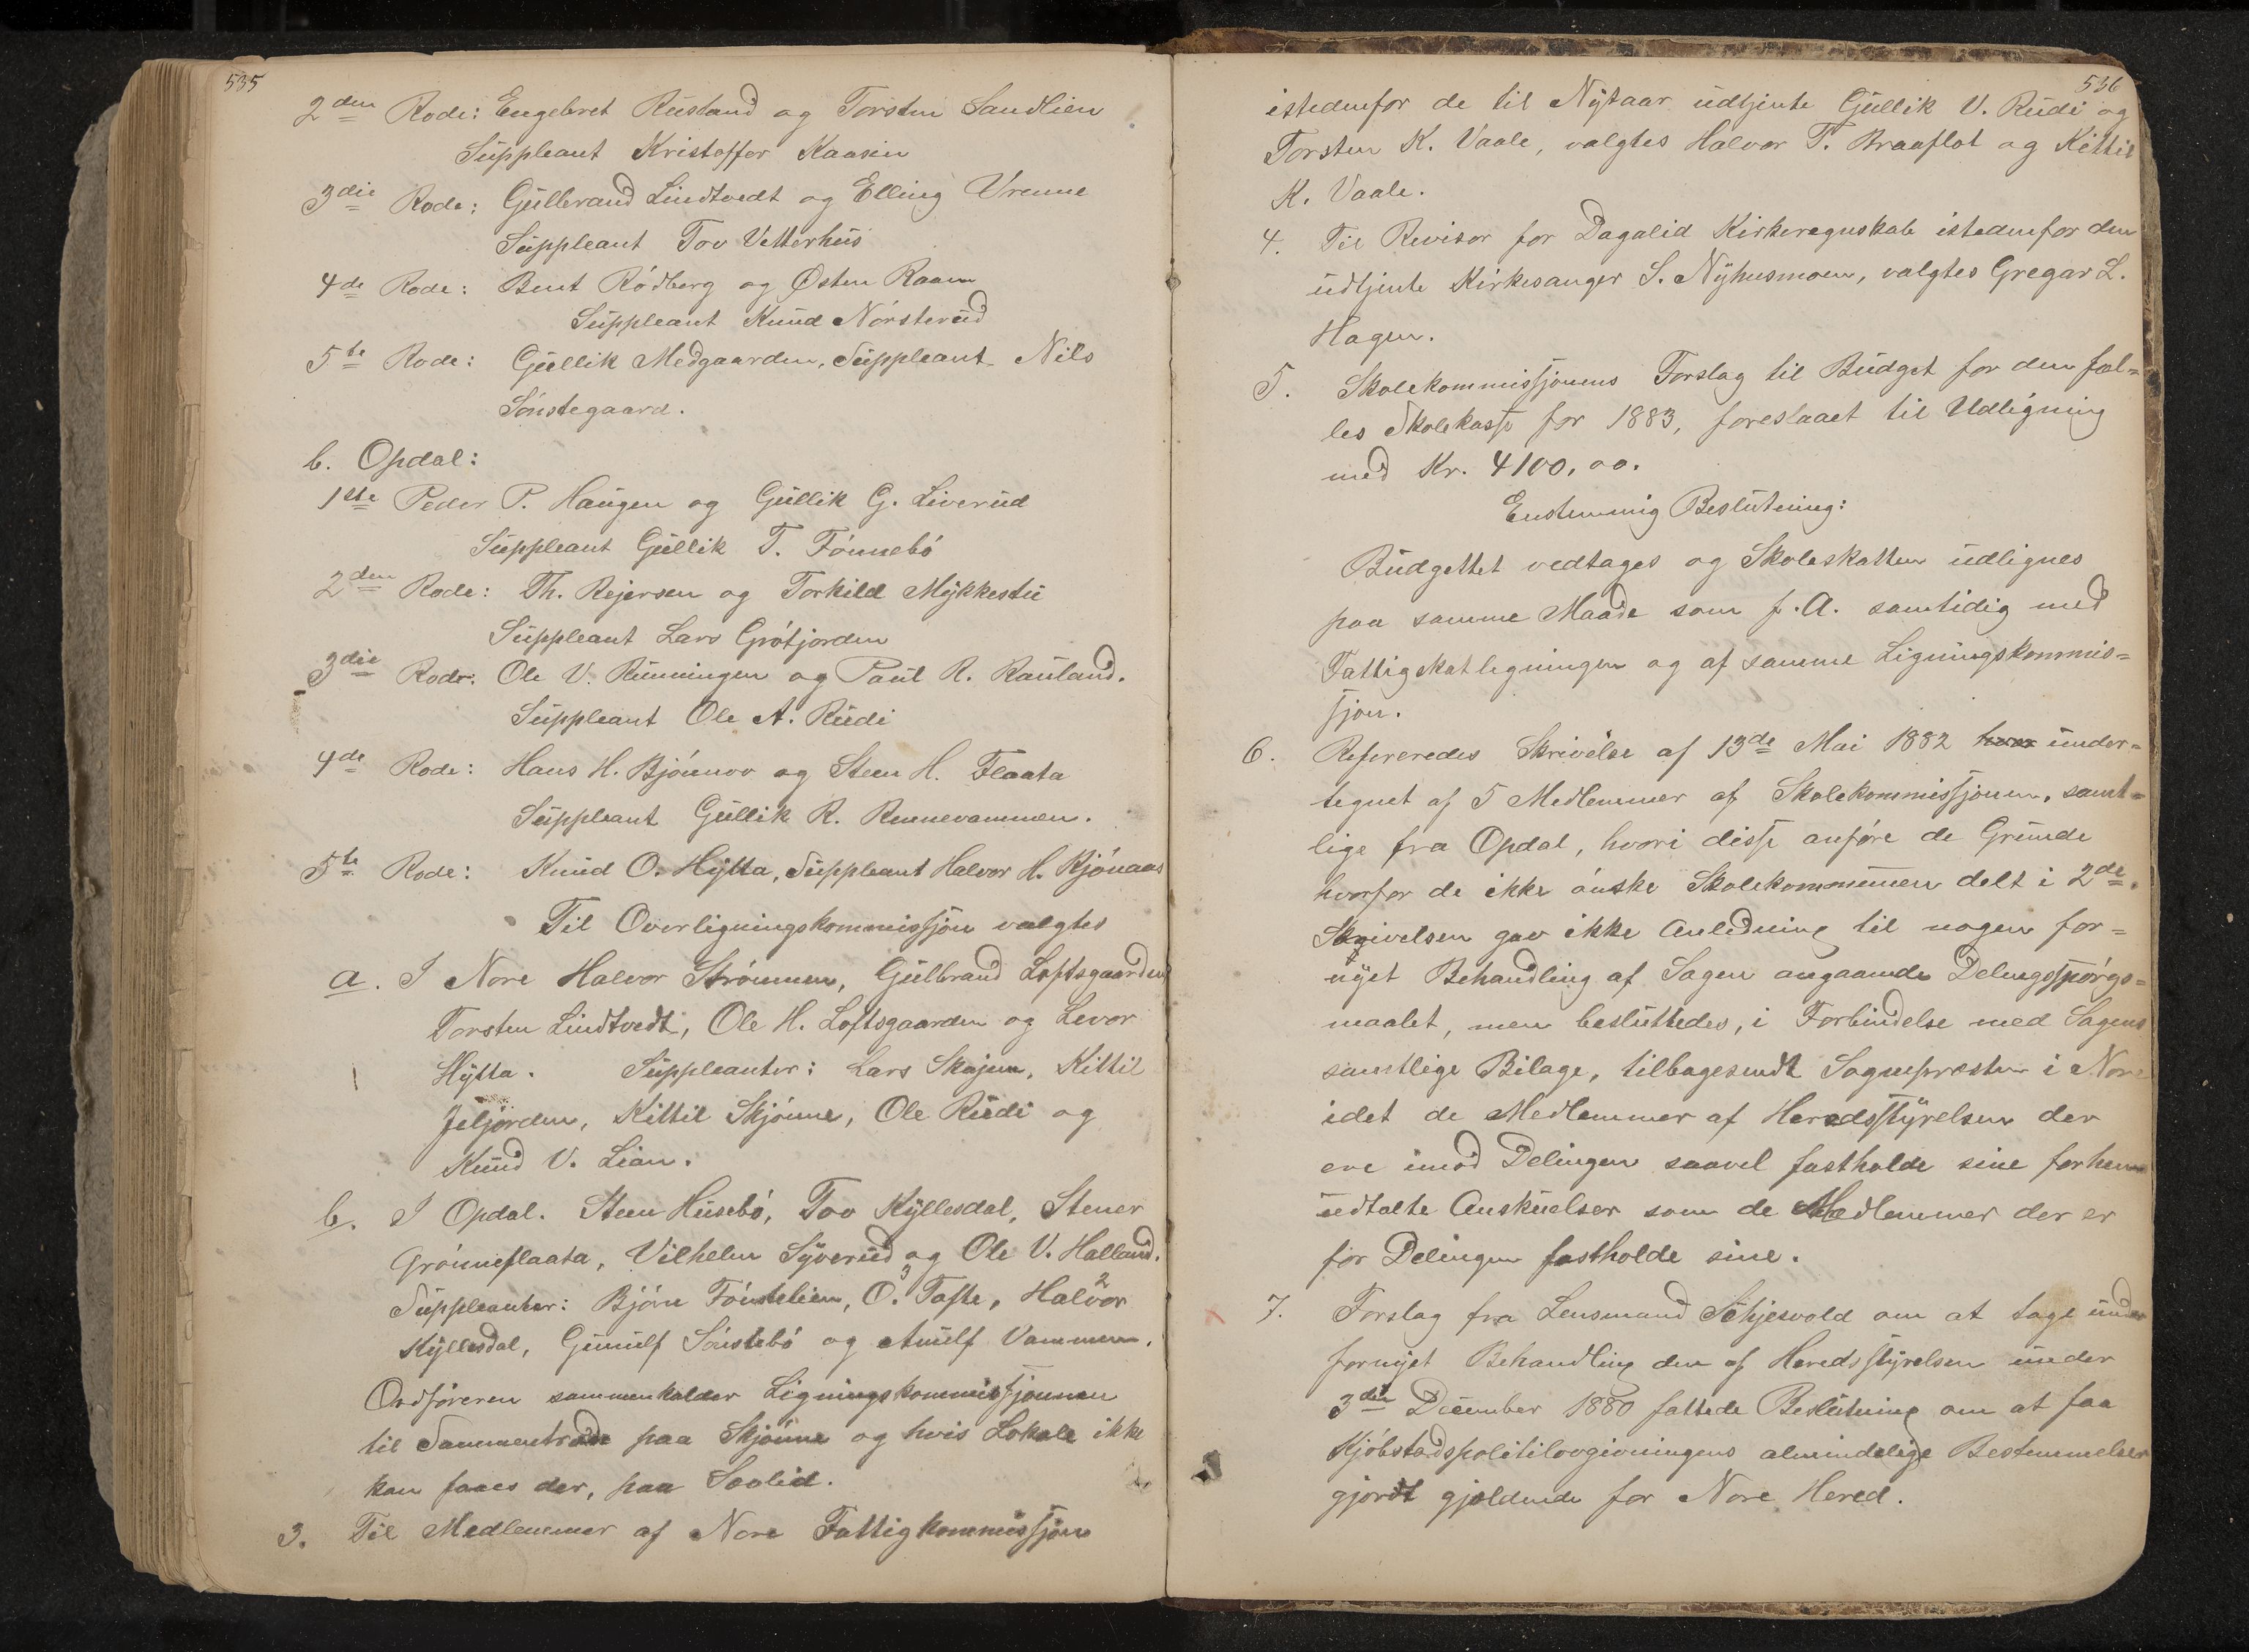 535
2den Rode: Engebret Rustand og Torsten Sandlien
Suppleant Kristoffer Kaasin
3die Rode: Gulbrand Lindtvedt og Elling Vrenne
Suppleant Tov Vetterhus
4de Rode: Bent Rødberg og Østen Raaen
Suppleant Knud Nørsterud
5te Rode: Gullik Medgaarden, Suppleant Nils
Sønstegaard.
b. Opdal:
1ste Peder P. Haugen og Gullik G. Liverud
Suppleant Gullik T. Fønnebø
2den Rode: Th. Rejersen og Torkild Mykkestu
Suppleant Lars Grøtjorden
3die Rode: Ole V. Runningen og Paul R. Rauland.
Suppleant Ole A. Rudi
4de Rode: Hans H. Bjønnov og Steen H. Flaata
Suppleant Gullik R. Rennevammen.
5te Rode: Knud O. Hytta, Suppleant Halvor H. Kjønaas
Til Overligningskommissjon valgtes
a. I Nore Halvor Strømmen, Gulbrand Loftsgaarden
Torsten Lindtvedt, Ole H. Loftsgaarden og Levor
Hytta. Suppleanter: Lars Skajem, Kittil
Jeljorden, Kittil Skjønne, Ole Rudi og
Knud V. Lian.
b. I Opdal. Steen Husebø, Tov Kyllesdal, Stener
Grønneflaata, Vilhelm Syverud og Ole V. Halland.
Suppleanter: Bjørn Føntelien, O. Tofte, Halvor
Kyllesdal, Gunulf Sønstebø og Anulf Vammen.
Ordføreren sammenkalder Ligningskommissjonen
til Sammentræde paa Skjønne og hvis Lokale ikke
kan faaes der, paa Soolid.
3. Til Medlemmer af Nore Fattigkommissjon
536
istedenfor de til Nytaar udtjente Gullik V. Rudi og
Torsten K. Vaale, valgtes Halvor T. Braaflot og Kittil
K. Vaale.
4. Til Revisor for Dagalid Kirkeregnskab istedenfor den
udtjente Kirkesanger S. Nyhusmoen, valgtes Gregar L.
Hagen.
5. Skolekommissjonens Forslag til Budget for den fæl=
les Skolekasse for 1883, foreslaaet til Udligning
med Kr. 4100,00.
Enstemmig Beslutning:
Budgettet vedtages og Skoleskatten udlignes
paa samme Maade som f. A. samtidig med
Fattigskatligningen og af samme Ligningskommis=
sjon.
6. Refereredes Skrivelse af 13de Mai 1882 under=
tegnet af 5 Medlemmer af Skolekommissjonen, samt=
lige fra Opdal, hvori disse anføre de Grunde
hvorfor de ikke ønske Skolekommunen delt i 2de.
Skrivelsen gav ikke Anledning til nogen for=
nyet Behandling af Sagen angaaende Delingsspørgs=
maalet, men besluttedes, i Forbindelse med Sagens
samtlige Bilage, tilbagesendt Sognepræsten i Nore
idet de Medlemmer af Heredsstyrelsen der
ere imod Delingen saavel fastholde sine forhen
udtalte Anskuelser som de Medlemmer der er
for Delingen fastholde sine.
7. Forslag fra Lensmand Schjesvold om at tage under
fornyet Behandling den af Heredsstyrelsen under
3die December 1880 fattede Beslutning om at faa
Kjøbstadspolitilovgivningens almindelige Bestemmelser
gjordt gjældende for Nore Hered.